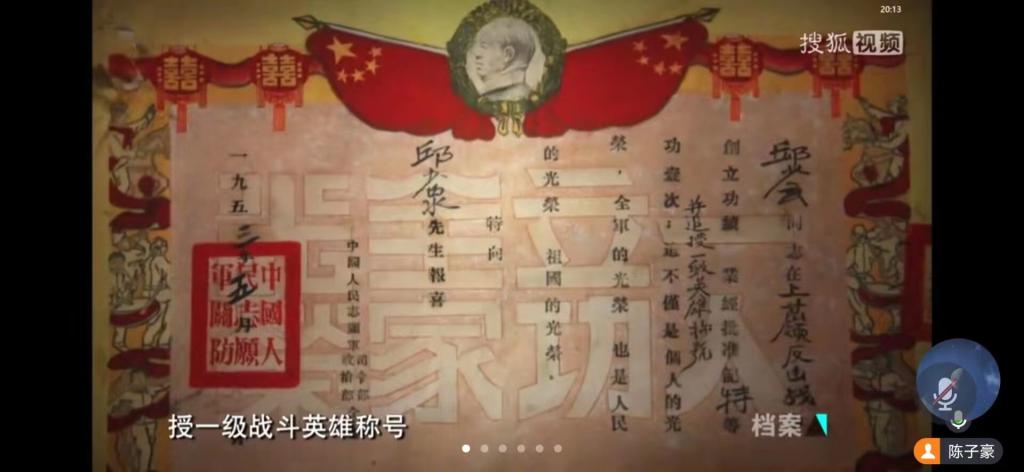 20:13
搜狐视频
同志在上甘嶺反击战
創立功績 業經批准記特等
功壹次，這不僅是個人的光
並追授一級英雄称号
榮，全軍的光榮 也是人民
的光榮 祖國的光榮。
特向
先生報喜
中國人民志願軍 司令部 政治部
一九五三年五月
中國人
民志願
軍關防
一人立功
全家
授一级战斗英雄称号
档案
陈子豪